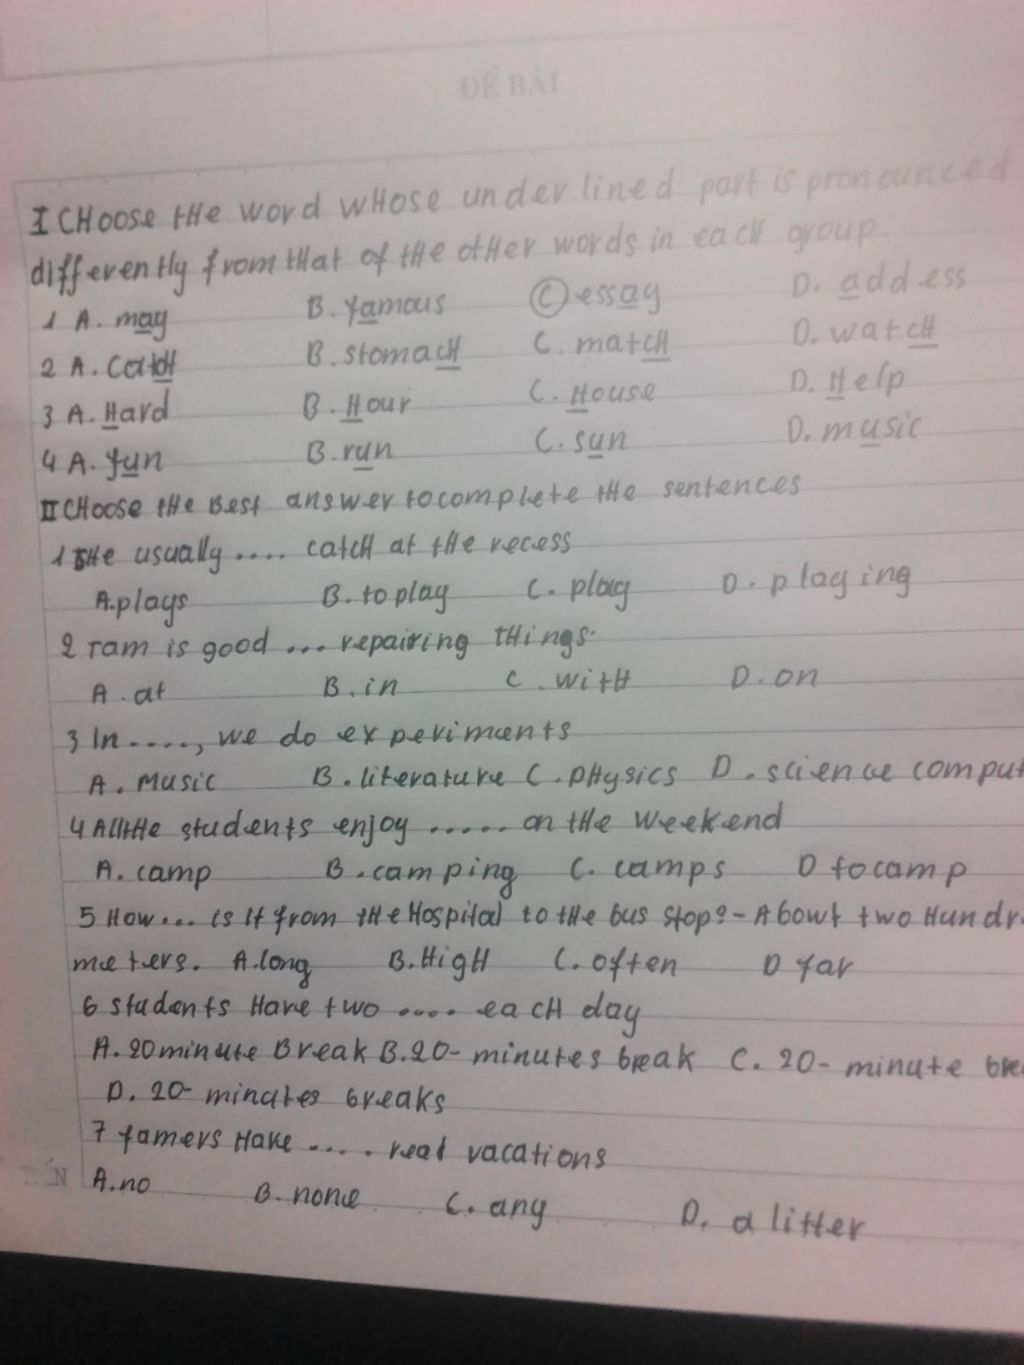 ĐỀ BÀI
I CHoose tHe word wHose under lined part is pronounced
differently from tHat of tHe otHer words in eacH group.
1 A. may B. famous C essay D. add ess
2 A. CatcH B. stomacH C. matcH D. watcH
3 A. Hard B. Hour C. House D. Help
4 A. fun B. run C. sun D. music
II CHoose tHe Best answer to complete tHe sentences
1 SHe usually .... catcH at tHe recess
A. plays B. to play C. play D. playing
2 Tam is good ... repairing tHings.
A. at B. in C. witH D. on
3 In ...., we do experiments
A. Music B. literature C. pHysics D. science comput
4 All tHe students enjoy ..... on tHe weekend
A. camp B. camping C. camps D to camp
5 How... is It from tHe Hospital to tHe bus stop? - About two Hundr
meters. A. long B. HigH C. often D far
6 students Have two .... eacH day
A. 20 minute Break B. 20- minutes break C. 20- minute bre
D. 20- minutes breaks
7 famers Have .... real vacations
A. no B. none C. any D. a litter